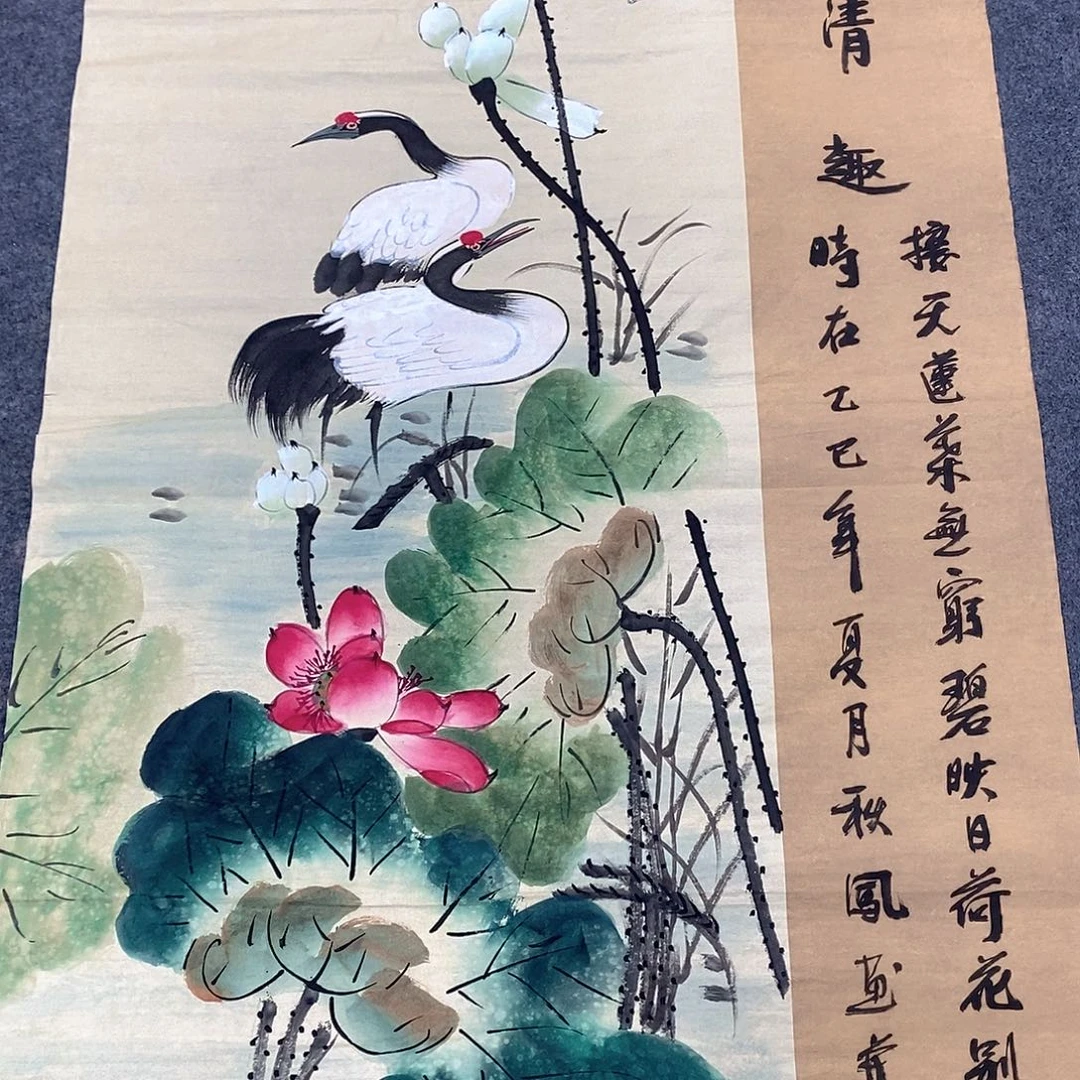 接天蓮葉無窮碧映日荷花别
清趣時在乙巳年夏月秋鳳画